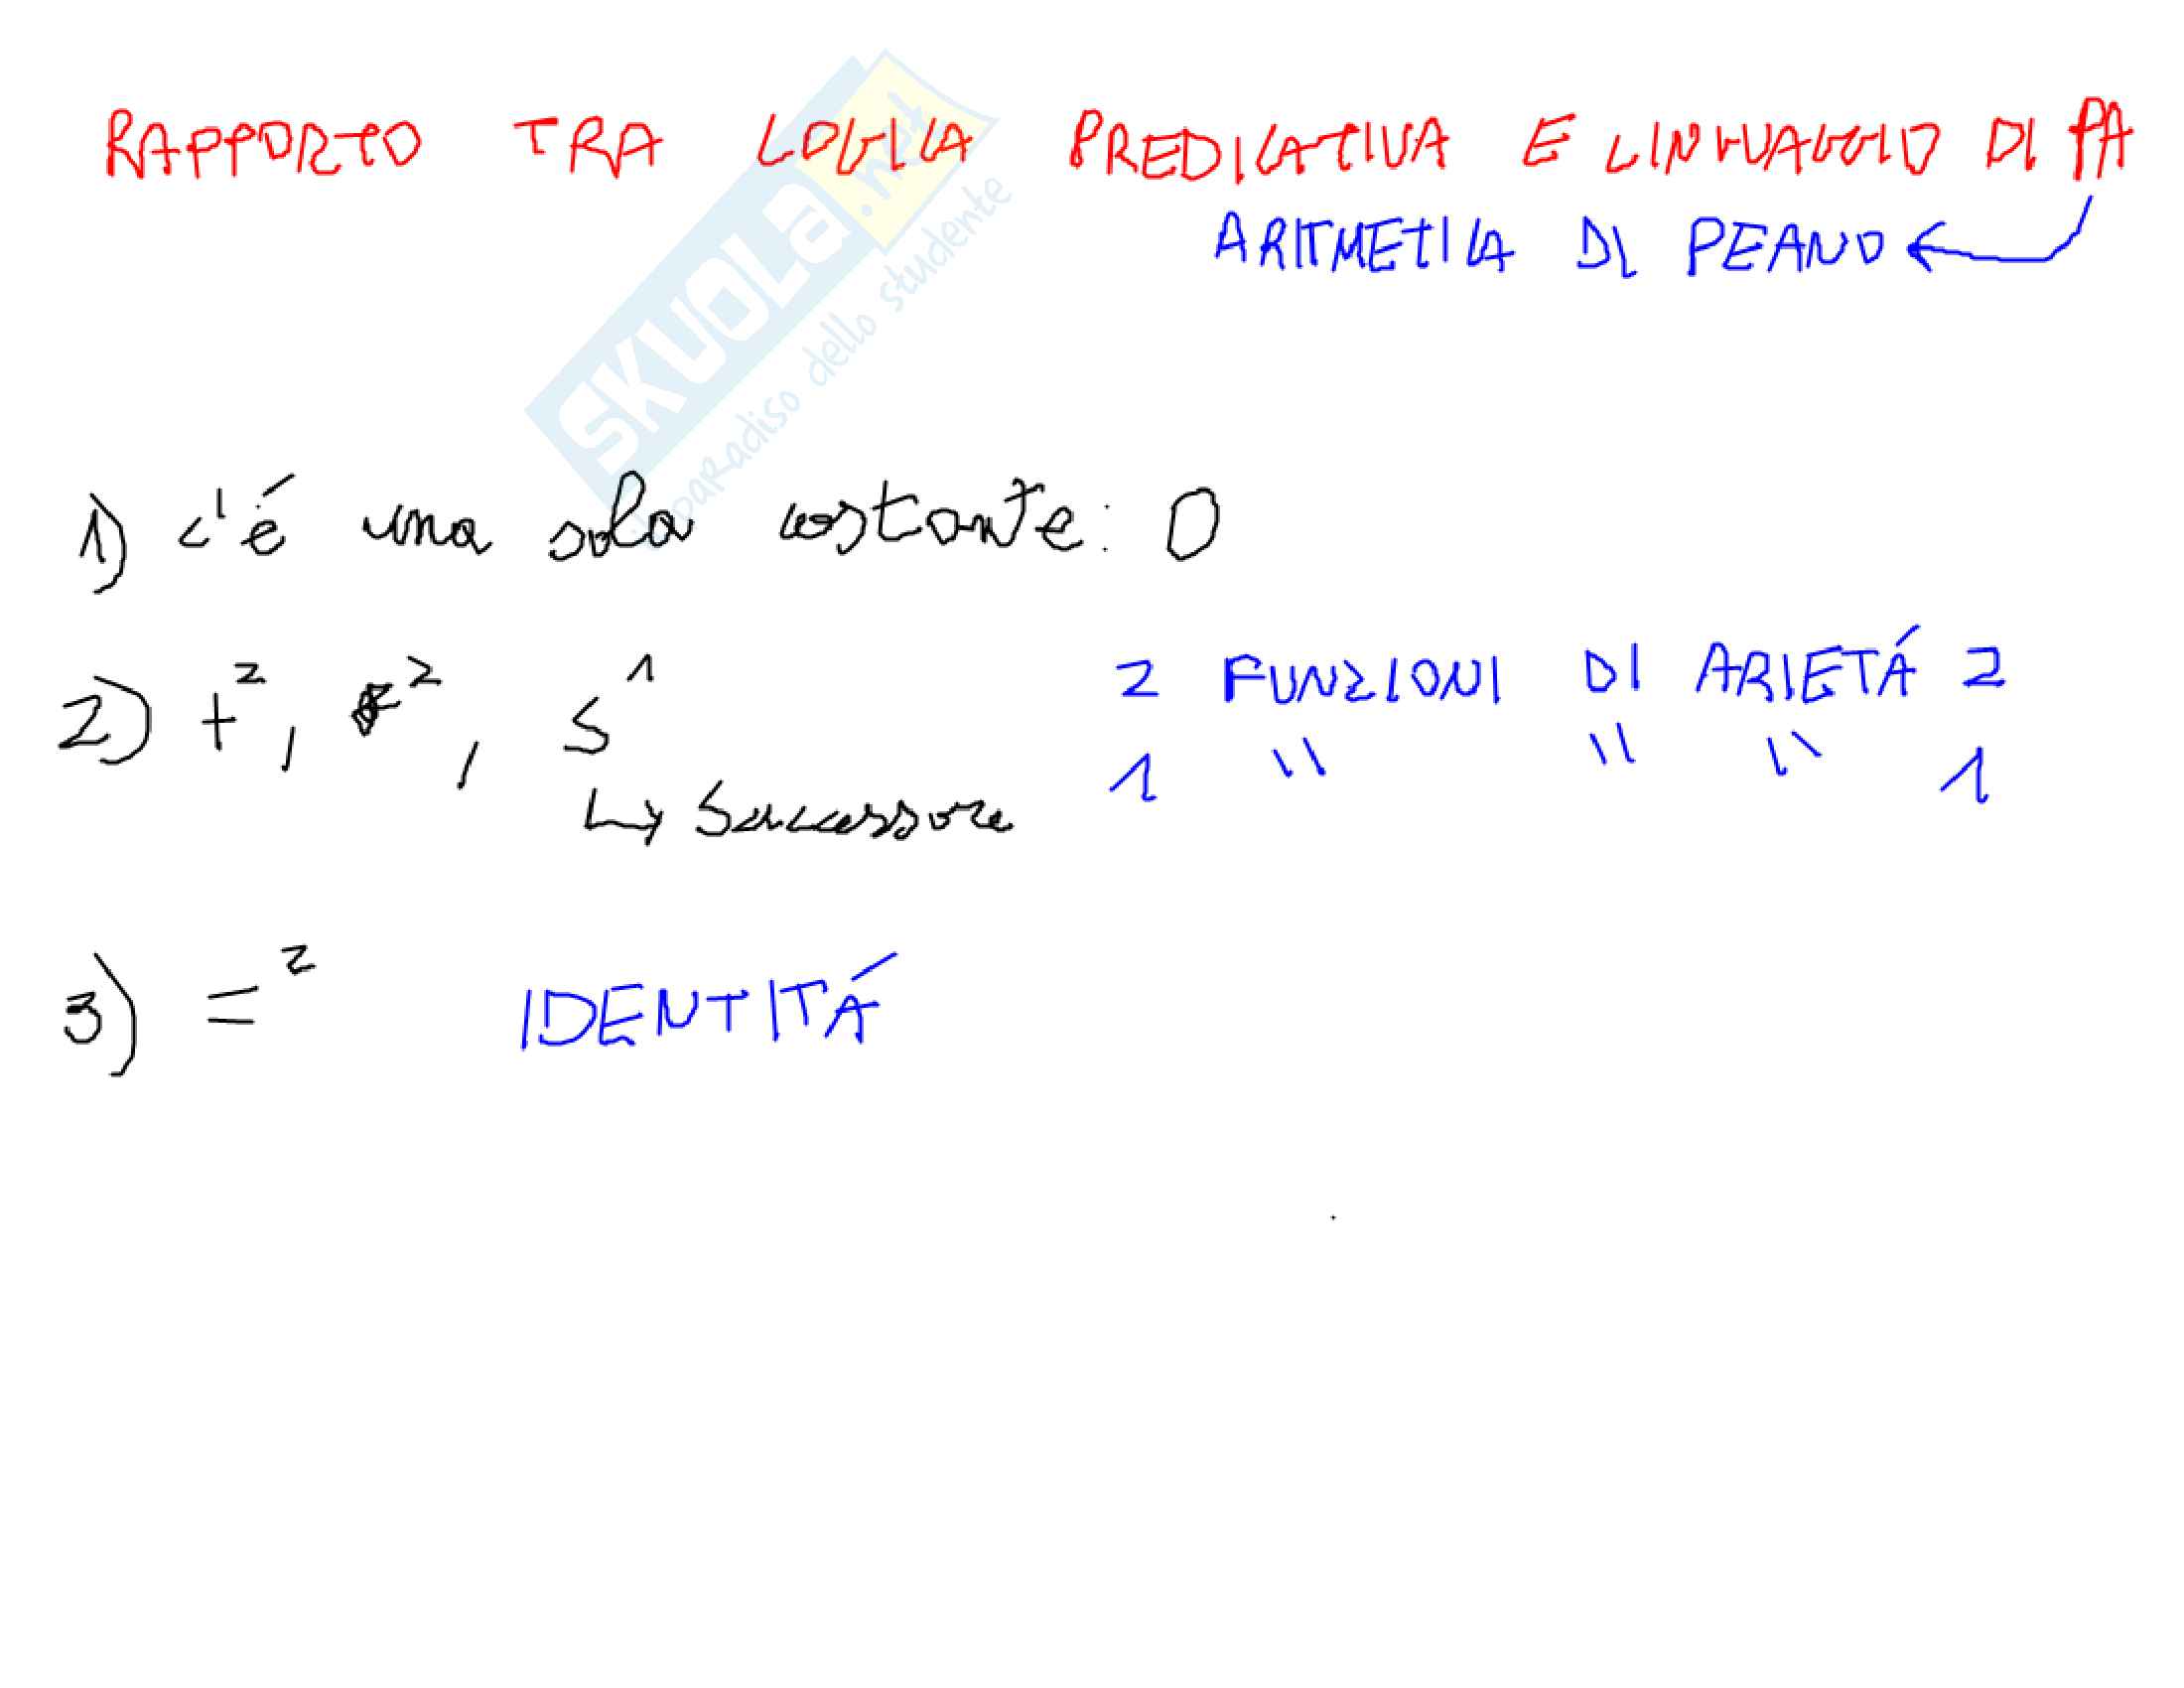 RAPPORTO TRA LOGICA PREDICATIVA E LINGUAGGIO DI PA
ARITMETICA DI PEANO
SKUOLA.net
il paradiso dello studente
1) c'é una sola costante: 0
2) +², *², S¹ 2 FUNZIONI DI ARIETÁ 2
↳ Successore 1 " " " 1
3) =² IDENTITÁ